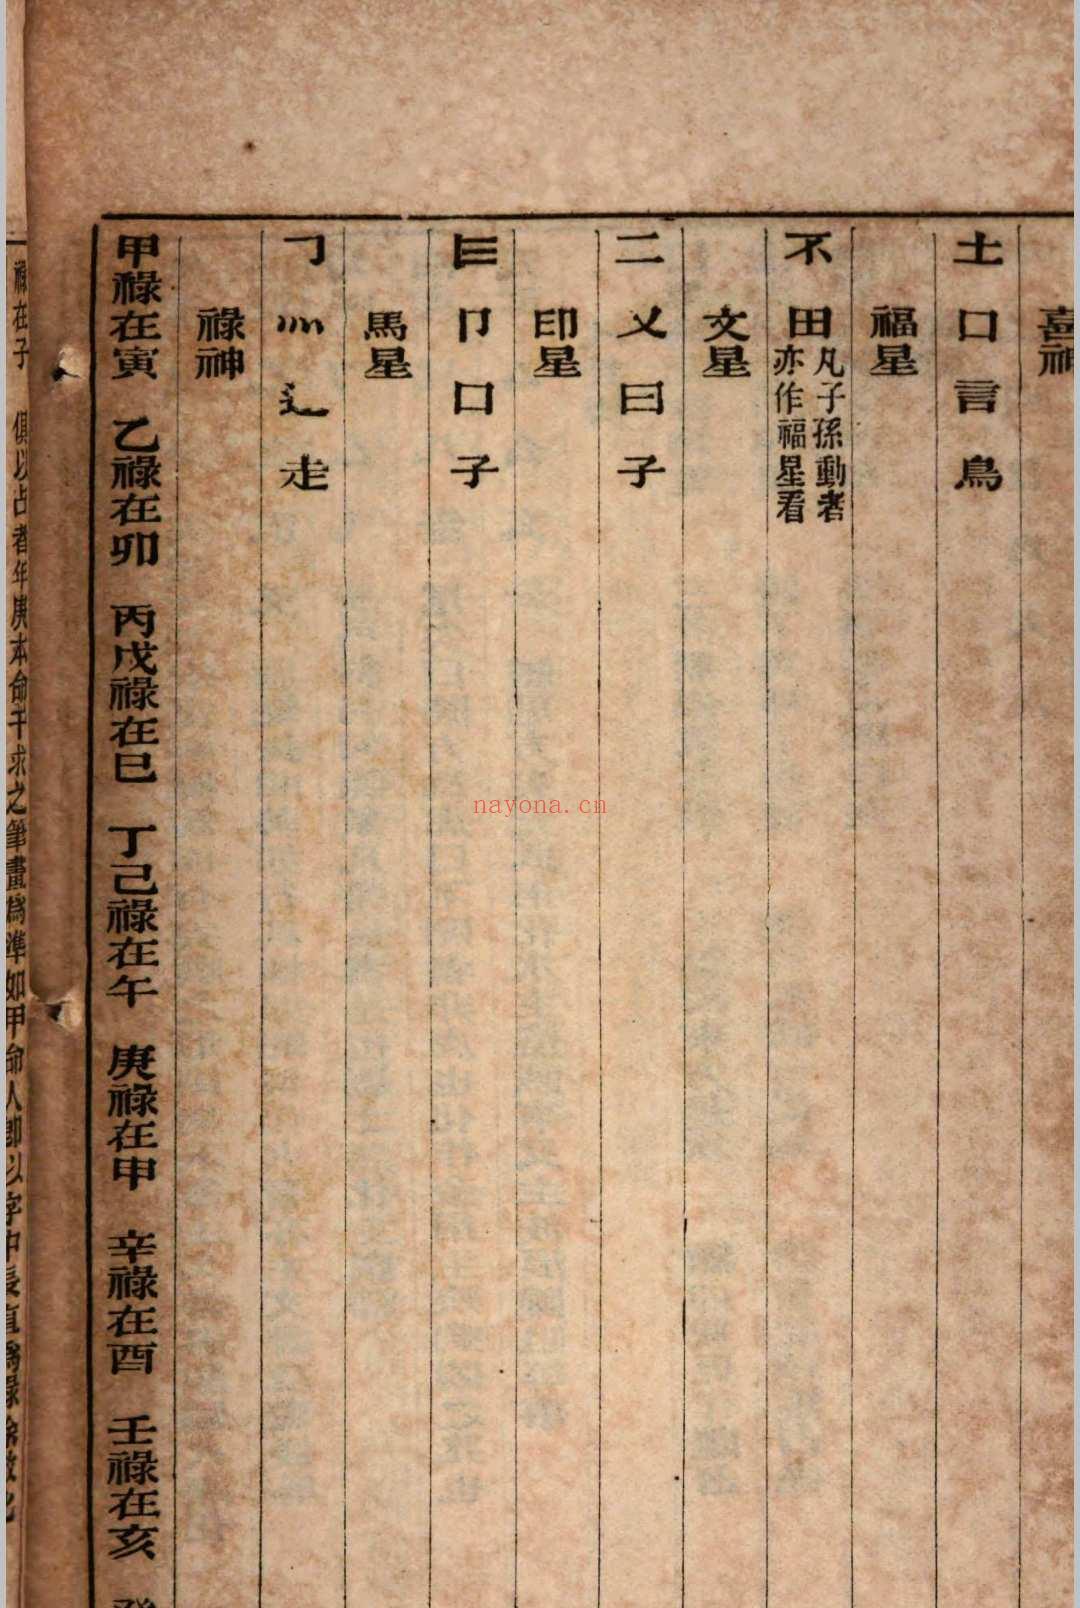 喜神
土 口 言 鳥
福星
不 田 凡子孫動者
亦作福星看
文星
二 乂 曰 子
印星
㠯 卩 口 子
馬星
灬 辶 走
祿神
甲祿在寅 乙祿在卯 丙戊祿在巳 丁己祿在午 庚祿在申 辛祿在酉 壬祿在亥 癸
祿在子 俱以占者年庚本命干求之筆畫爲準如甲命人卽以字中長直爲祿餘倣此
nayona.cn